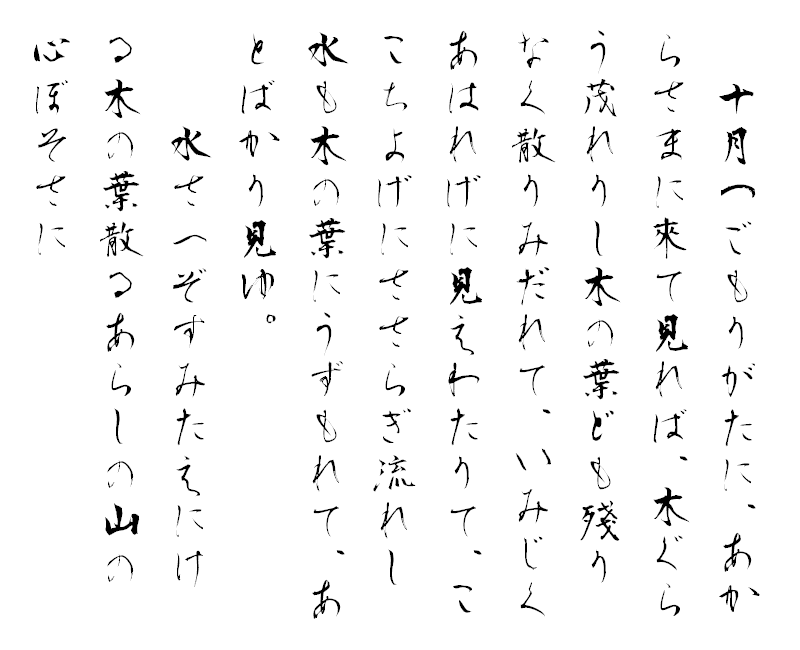 十月つごもりがたに、あか
らさまに來て見れば、木ぐら
う茂れりし木の葉ども殘り
なく散りみだれて、いみじく
あはれげに見えわたりて、こ
こちよげにささらぎ流れし
水も木の葉にうずもれて、あ
とばかり見ゆ。
水さへぞすみたえにけ
る木の葉散るあらしの山の
心ぼそさに